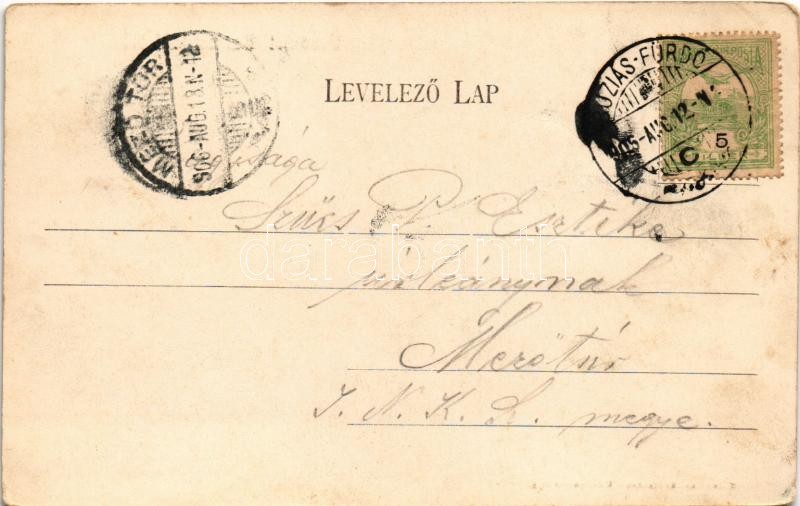 MEZŐ TÚR
905-AUG.13.N-12
LEVELEZŐ LAP
BUZIÁS-FÜRDŐ
905-AUG.12-N
C
5
Szücs P. Esztike
úrleánynak
Mezőtúr
J. N. K. Sz. megye.
darabanth